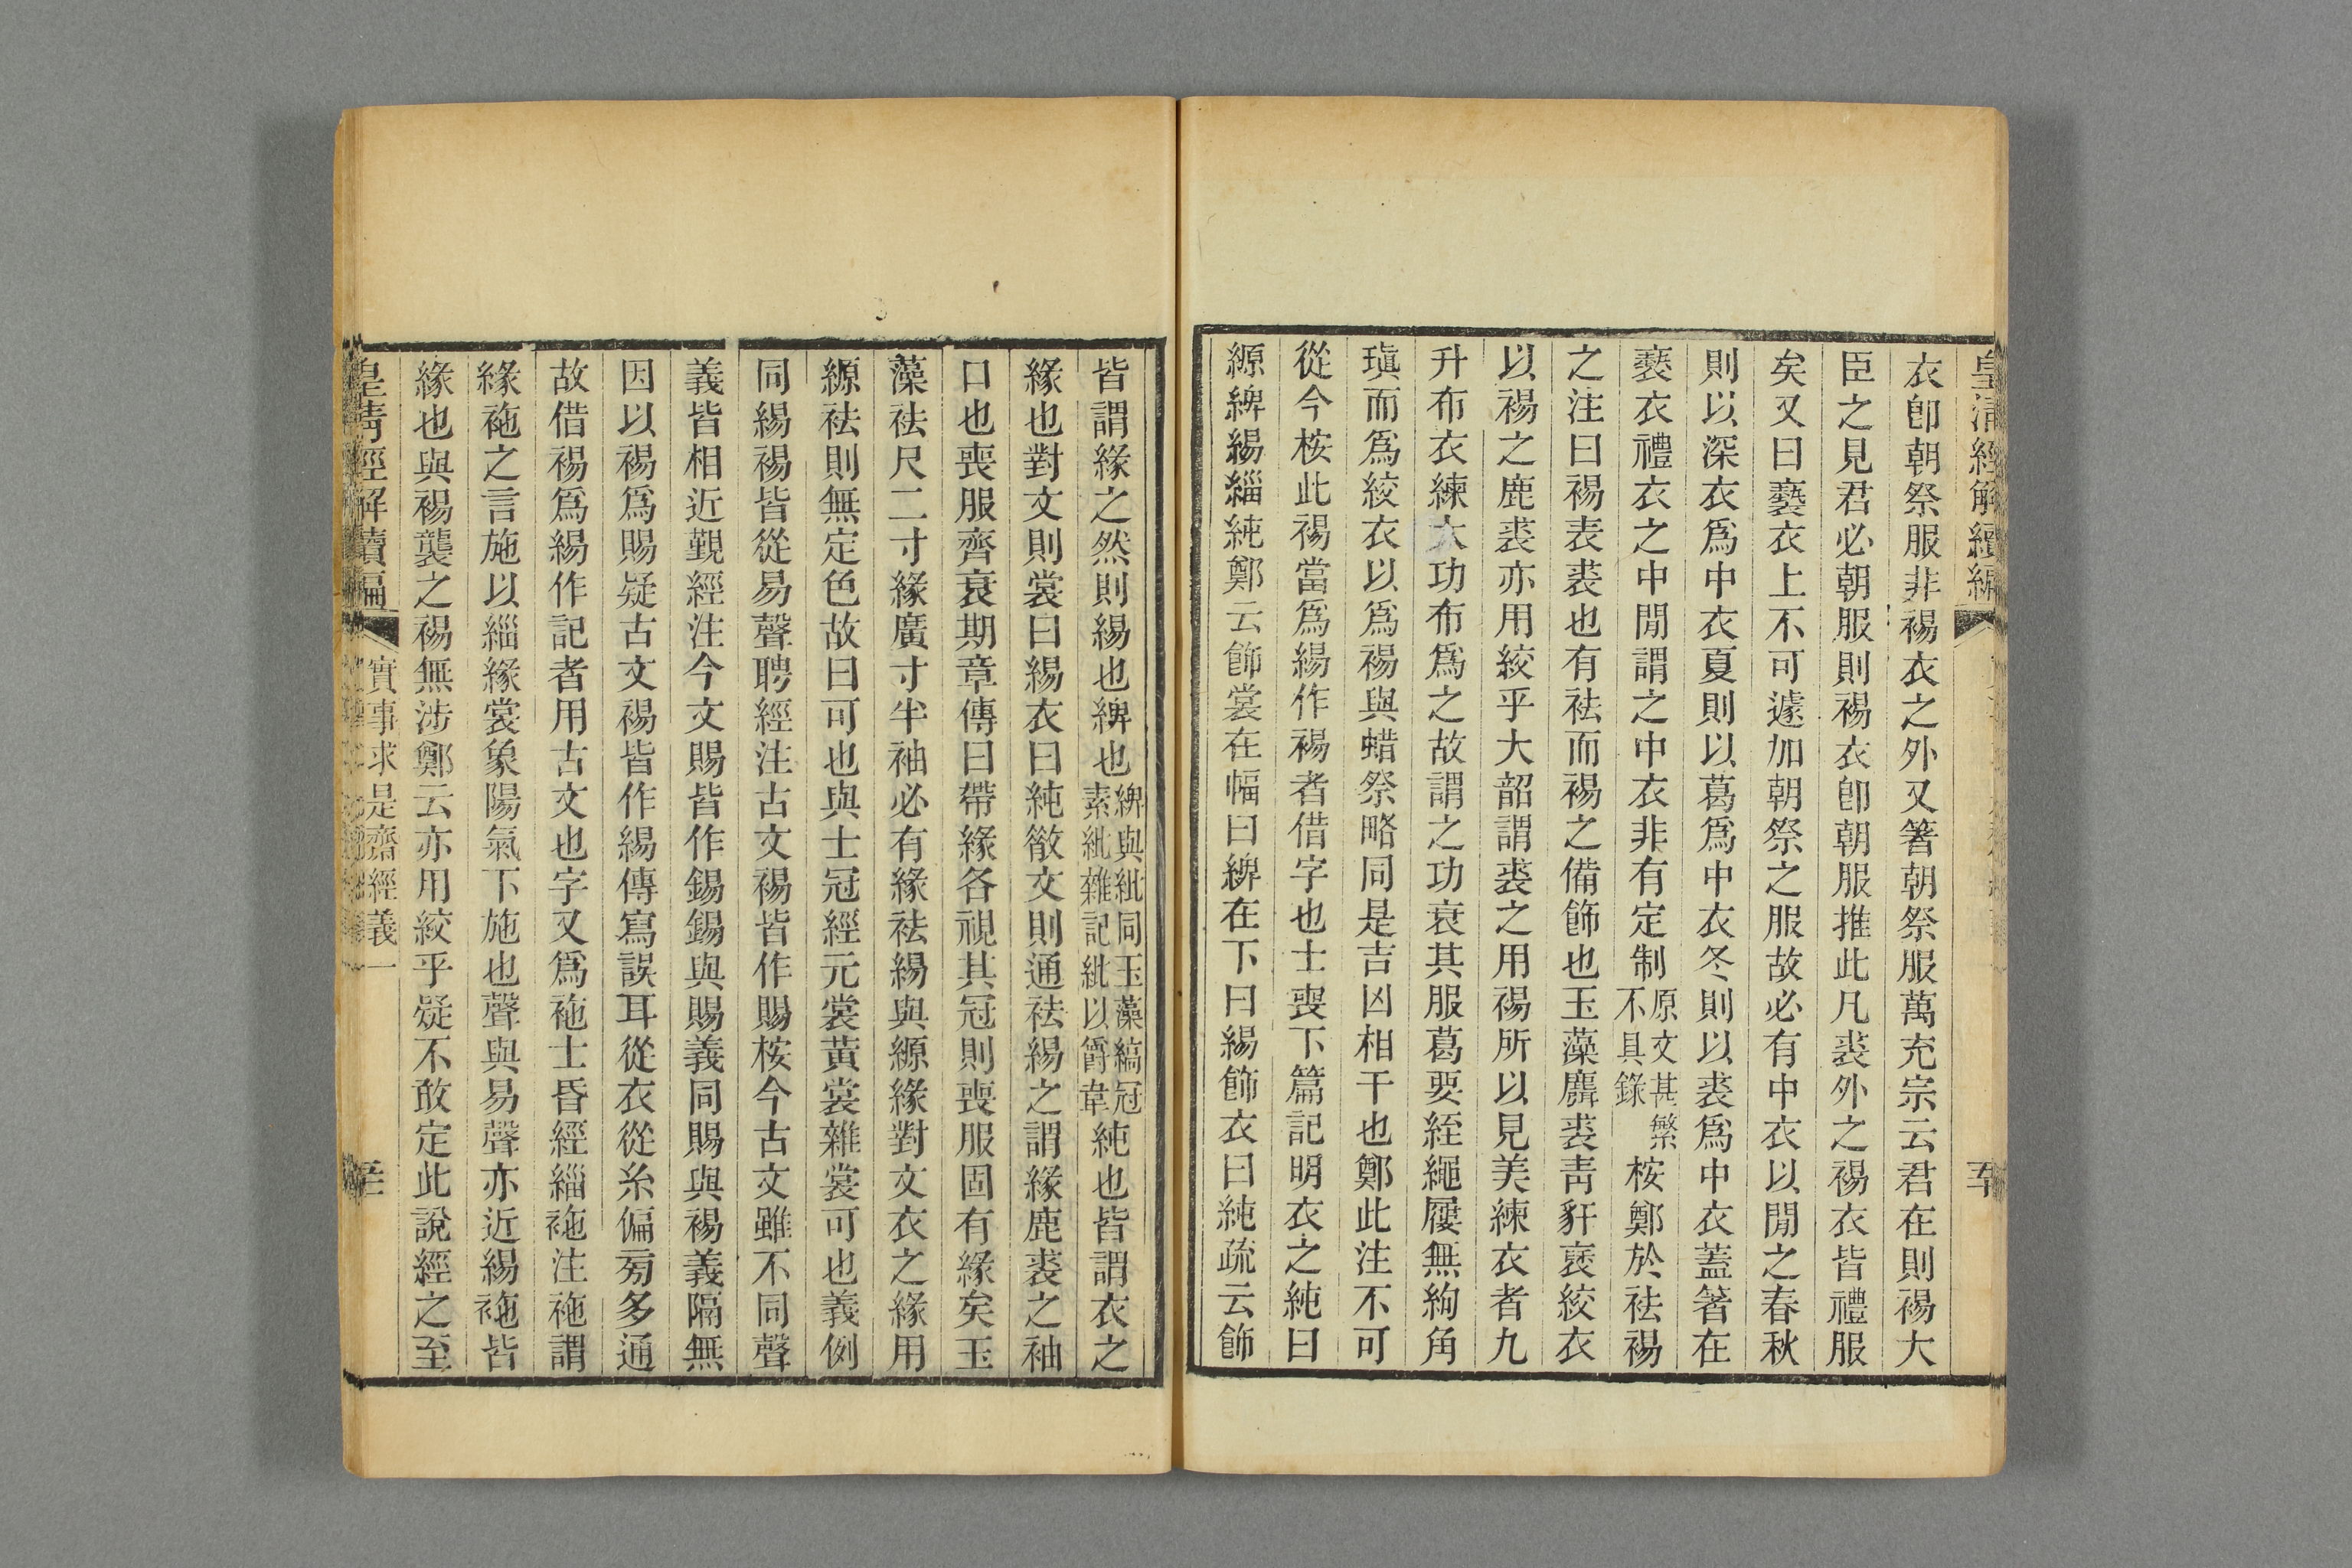 皇清經解續編
衣卽朝祭服非裼衣之外又箸朝祭服萬充宗云君在則裼大
臣之見君必朝服則裼衣卽朝服推此凡裘外之裼衣皆禮服
矣又曰褻衣上不可遽加朝祭之服故必有中衣以閒之春秋
則以深衣爲中衣夏則以葛爲中衣冬則以裘爲中衣蓋箸在
褻衣禮衣之中閒謂之中衣非有定制原文甚繁不具錄桉鄭於袪裼
之注曰裼表裘也有袪而裼之備飾也玉藻麛裘靑豻褎絞衣
以裼之鹿裘亦用絞乎大韶謂裘之用裼所以見美練衣者九
升布衣練大功布爲之故謂之功衰其服葛要絰繩屨無絇角
瑱而爲絞衣以爲裼與蜡祭略同是吉凶相干也鄭此注不可
從今桉此裼當爲緆作裼者借字也士喪下篇記明衣之純曰
縓綼緆緇純鄭云飾裳在幅曰綼在下曰緆飾衣曰純疏云飾
皆謂緣之然則緆也綼也綼與紕同玉藻縞冠素紕雜記紕以爵韋純也皆謂衣之
緣也對文則裳曰緆衣曰純散文則通袪緆之謂緣鹿裘之袖
口也喪服齊衰期章傳曰帶緣各視其冠則喪服固有緣矣玉
藻袪尺二寸緣廣寸半袖必有緣袪緆與縓緣對文衣之緣用
縓袪則無定色故曰可也與士冠經元裳黃裳雜裳可也義例
同緆裼皆從易聲聘經注古文裼皆作賜桉今古文雖不同聲
義皆相近覲經注今文賜皆作錫錫與賜義同賜與裼義隔無
因以裼爲賜疑古文裼皆作緆傳寫誤耳從衣從糸偏旁多通
故借裼爲緆作記者用古文也字又爲袘士昏經緇袘注袘謂
緣袘之言施以緇緣裳象陽氣下施也聲與易聲亦近緆袘皆
緣也與裼襲之裼無涉鄭云亦用絞乎疑不敢定此說經之至
皇淸經解續編 實事求是齋經義一